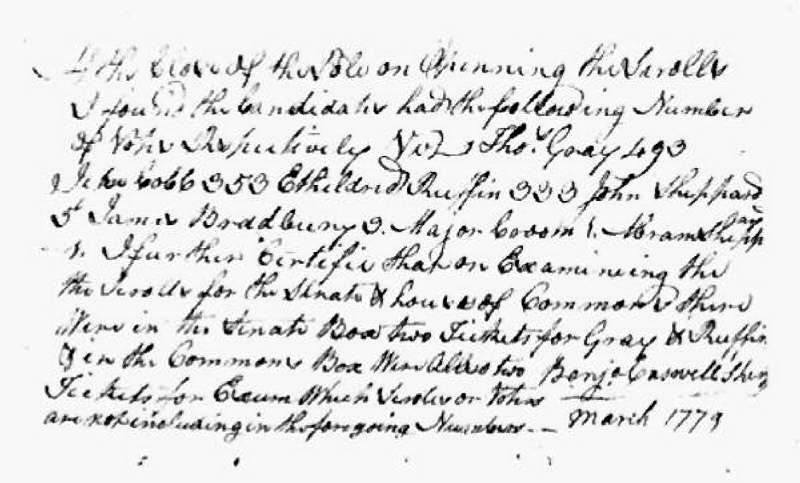 At the Close of the Pole on Openning the Scrolls
I found the Candidates had the following Number
of Votes Respectively Vizt Thos. Gray 493
Jesse Cobb 353 Etheldred Ruffin 333 John Sheppard
5 James Bradbury 3. Major Croom 1. Abram Shipp
1. I further Certifie that on Examineing the
the Scrolls for the Senate & house of Commons there
Were in the Senate Box two Tickets for Gray & Ruffin
& in the Commons Box Were Allso two Benja. Caswell Sher
Tickets for Exum Which Scrolls or Votes
are not including in the foregoing Numbers -- March 1779